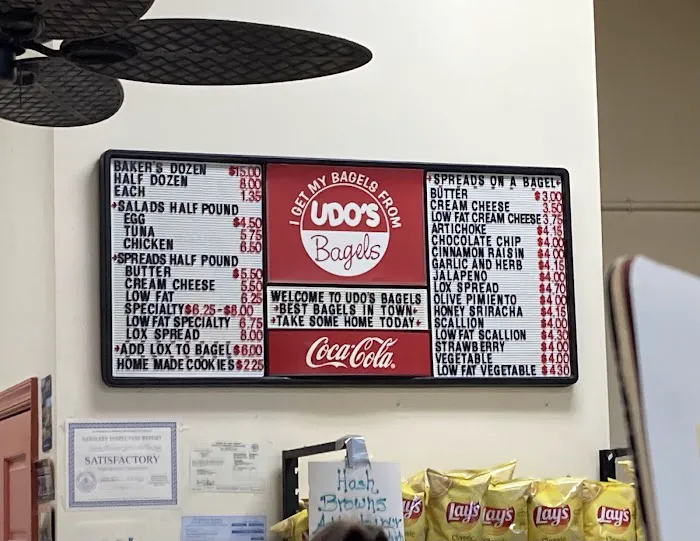 BAKER'S DOZEN $15.00
HALF DOZEN 8.00
EACH 1.35
+SALADS HALF POUND
EGG $4.50
TUNA 5.75
CHICKEN 6.50
+SPREADS HALF POUND
BUTTER $5.50
CREAM CHEESE 5.50
LOW FAT 6.25
SPECIALTY $6.25-$8.00
LOW FAT SPECIALTY 6.75
LOX SPREAD 8.00
+ADD LOX TO BAGEL $6.00
HOME MADE COOKIES $2.25
I GET MY BAGELS FROM
UDO'S
Bagels
WELCOME TO UDO'S BAGELS
+BEST BAGELS IN TOWN+
+TAKE SOME HOME TODAY+
Coca-Cola
+SPREADS ON A BAGEL+
BUTTER $3.00
CREAM CHEESE 3.50
LOW FAT CREAM CHEESE 3.75
ARTICHOKE $4.15
CHOCOLATE CHIP $4.00
CINNAMON RAISIN $4.00
GARLIC AND HERB $4.15
JALAPENO $4.00
LOX SPREAD $4.70
OLIVE PIMIENTO $4.00
HONEY SRIRACHA $4.15
SCALLION $4.00
LOW FAT SCALLION $4.30
STRAWBERRY $4.00
VEGETABLE $4.00
LOW FAT VEGETABLE $4.30
SANITARY INSPECTION REPORT
SATISFACTORY
Hash
Browns
Lay's
Lay's
Lay's
Lay's
Classic